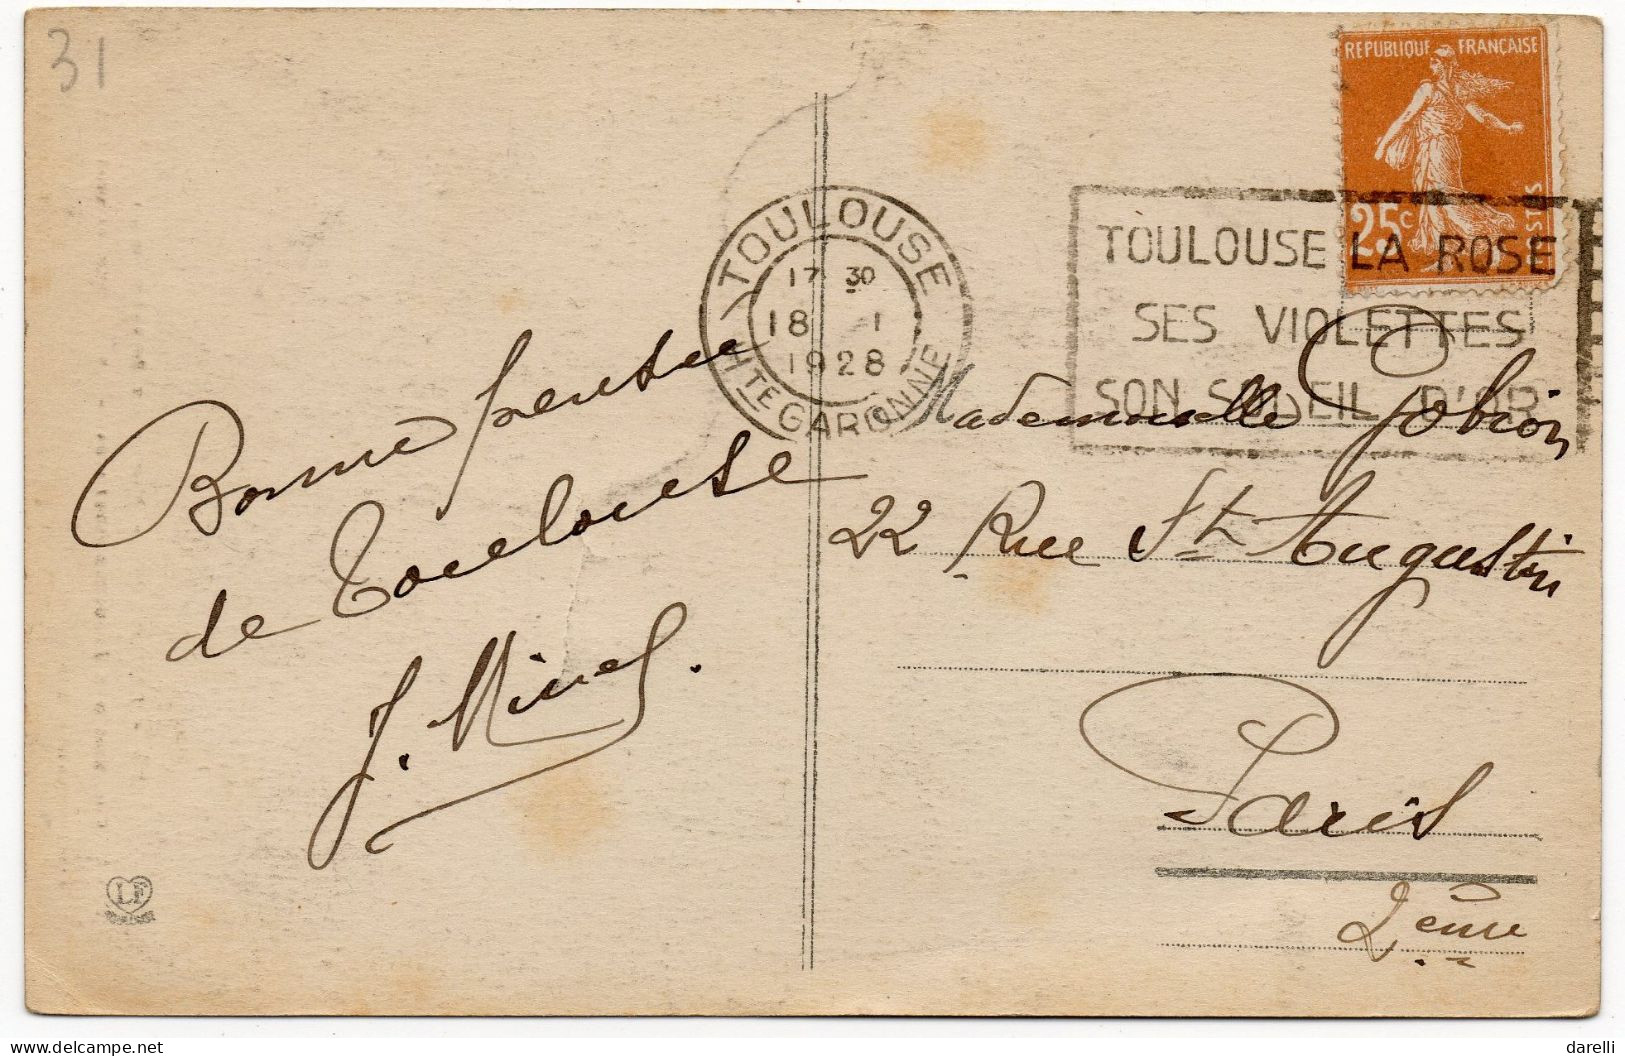 31
REPUBLIQUE FRANÇAISE
25c
POSTES
TOULOUSE
17 30
18 1
1928
HTE GARONNE
TOULOUSE LA ROSE
SES VIOLETTES
SON SOLEIL D'OR
Bonne pensée
de Toulouse
J.
Mademoiselle Gobion
22 Rue St Augustin
Paris
2eme
LF
delcampe.net
darelli